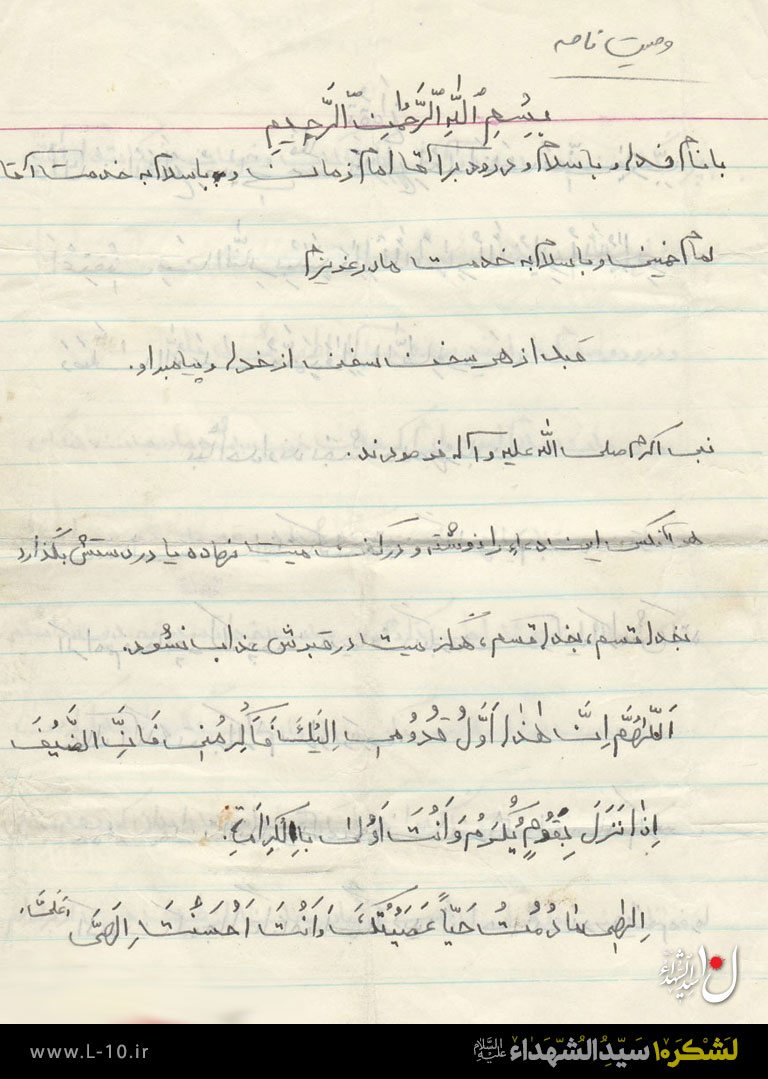 وصیت نامه
بِسْمِ اللَّهِ الرَّحْمٰنِ الرَّحیمِ
بانام خدا و باسلام و درود بر آقا امام زمان و باسلام به خدمت آقا
امام خمینی و باسلام به خدمت مادر عزیزم
قبل از هر سخن سخنی از خدا و پیامبر او.
نبی اکرم صلی الله علیه و آله فرمودند.
هر آنکس این دعا را نوشته و در کفن میت نهاده یا در دستش بگذارد
بخدا قسم، بخدا قسم، هرگز میت در قبرش عذاب نشود.
اَللّٰهُمَّ اِنَّ هٰذا اَوَّلُ قُدُومی اِلَیْکَ فَاَکْرِمْنی فَاِنَّ الضَّیْفَ
اِذا نَزَلَ بِقَوْمٍ یُکْرَمُ وَ اَنْتَ اَوْلیٰ بِالْکَرامَةِ.
اِلٰهی مادُمْتُ حَیّاً عَصَیْتُکَ وَ اَنْتَ اَحْسَنْتَ اِلَیَّ
لشکر ۱۰ سیدُالشهداء علیه السلام
www.L-10.ir